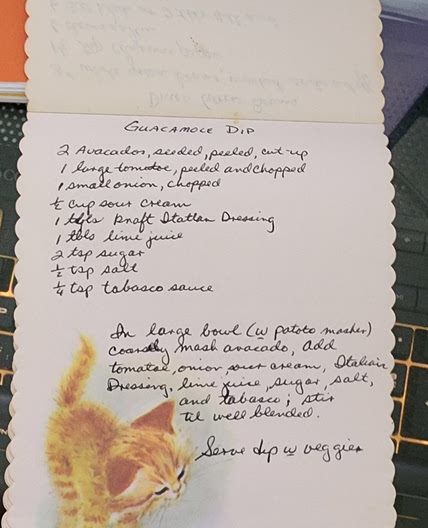 GUACAMOLE DIP
2 Avacados, seeded, peeled, cut up
1 large tomatoe, peeled and chopped
1 small onion, chopped
½ cup sour cream
1 tbls Kraft Italian Dressing
1 tbls lime juice
2 tsp sugar
½ tsp salt
¼ tsp tabasco sauce
In large bowl (w patoto masher)
coarsely mash avacado, add
tomatoe, onion, sour cream, Italian
Dressing, lime juice, sugar, salt,
and tabasco; stir
til well blended.
Serve dip w veggies